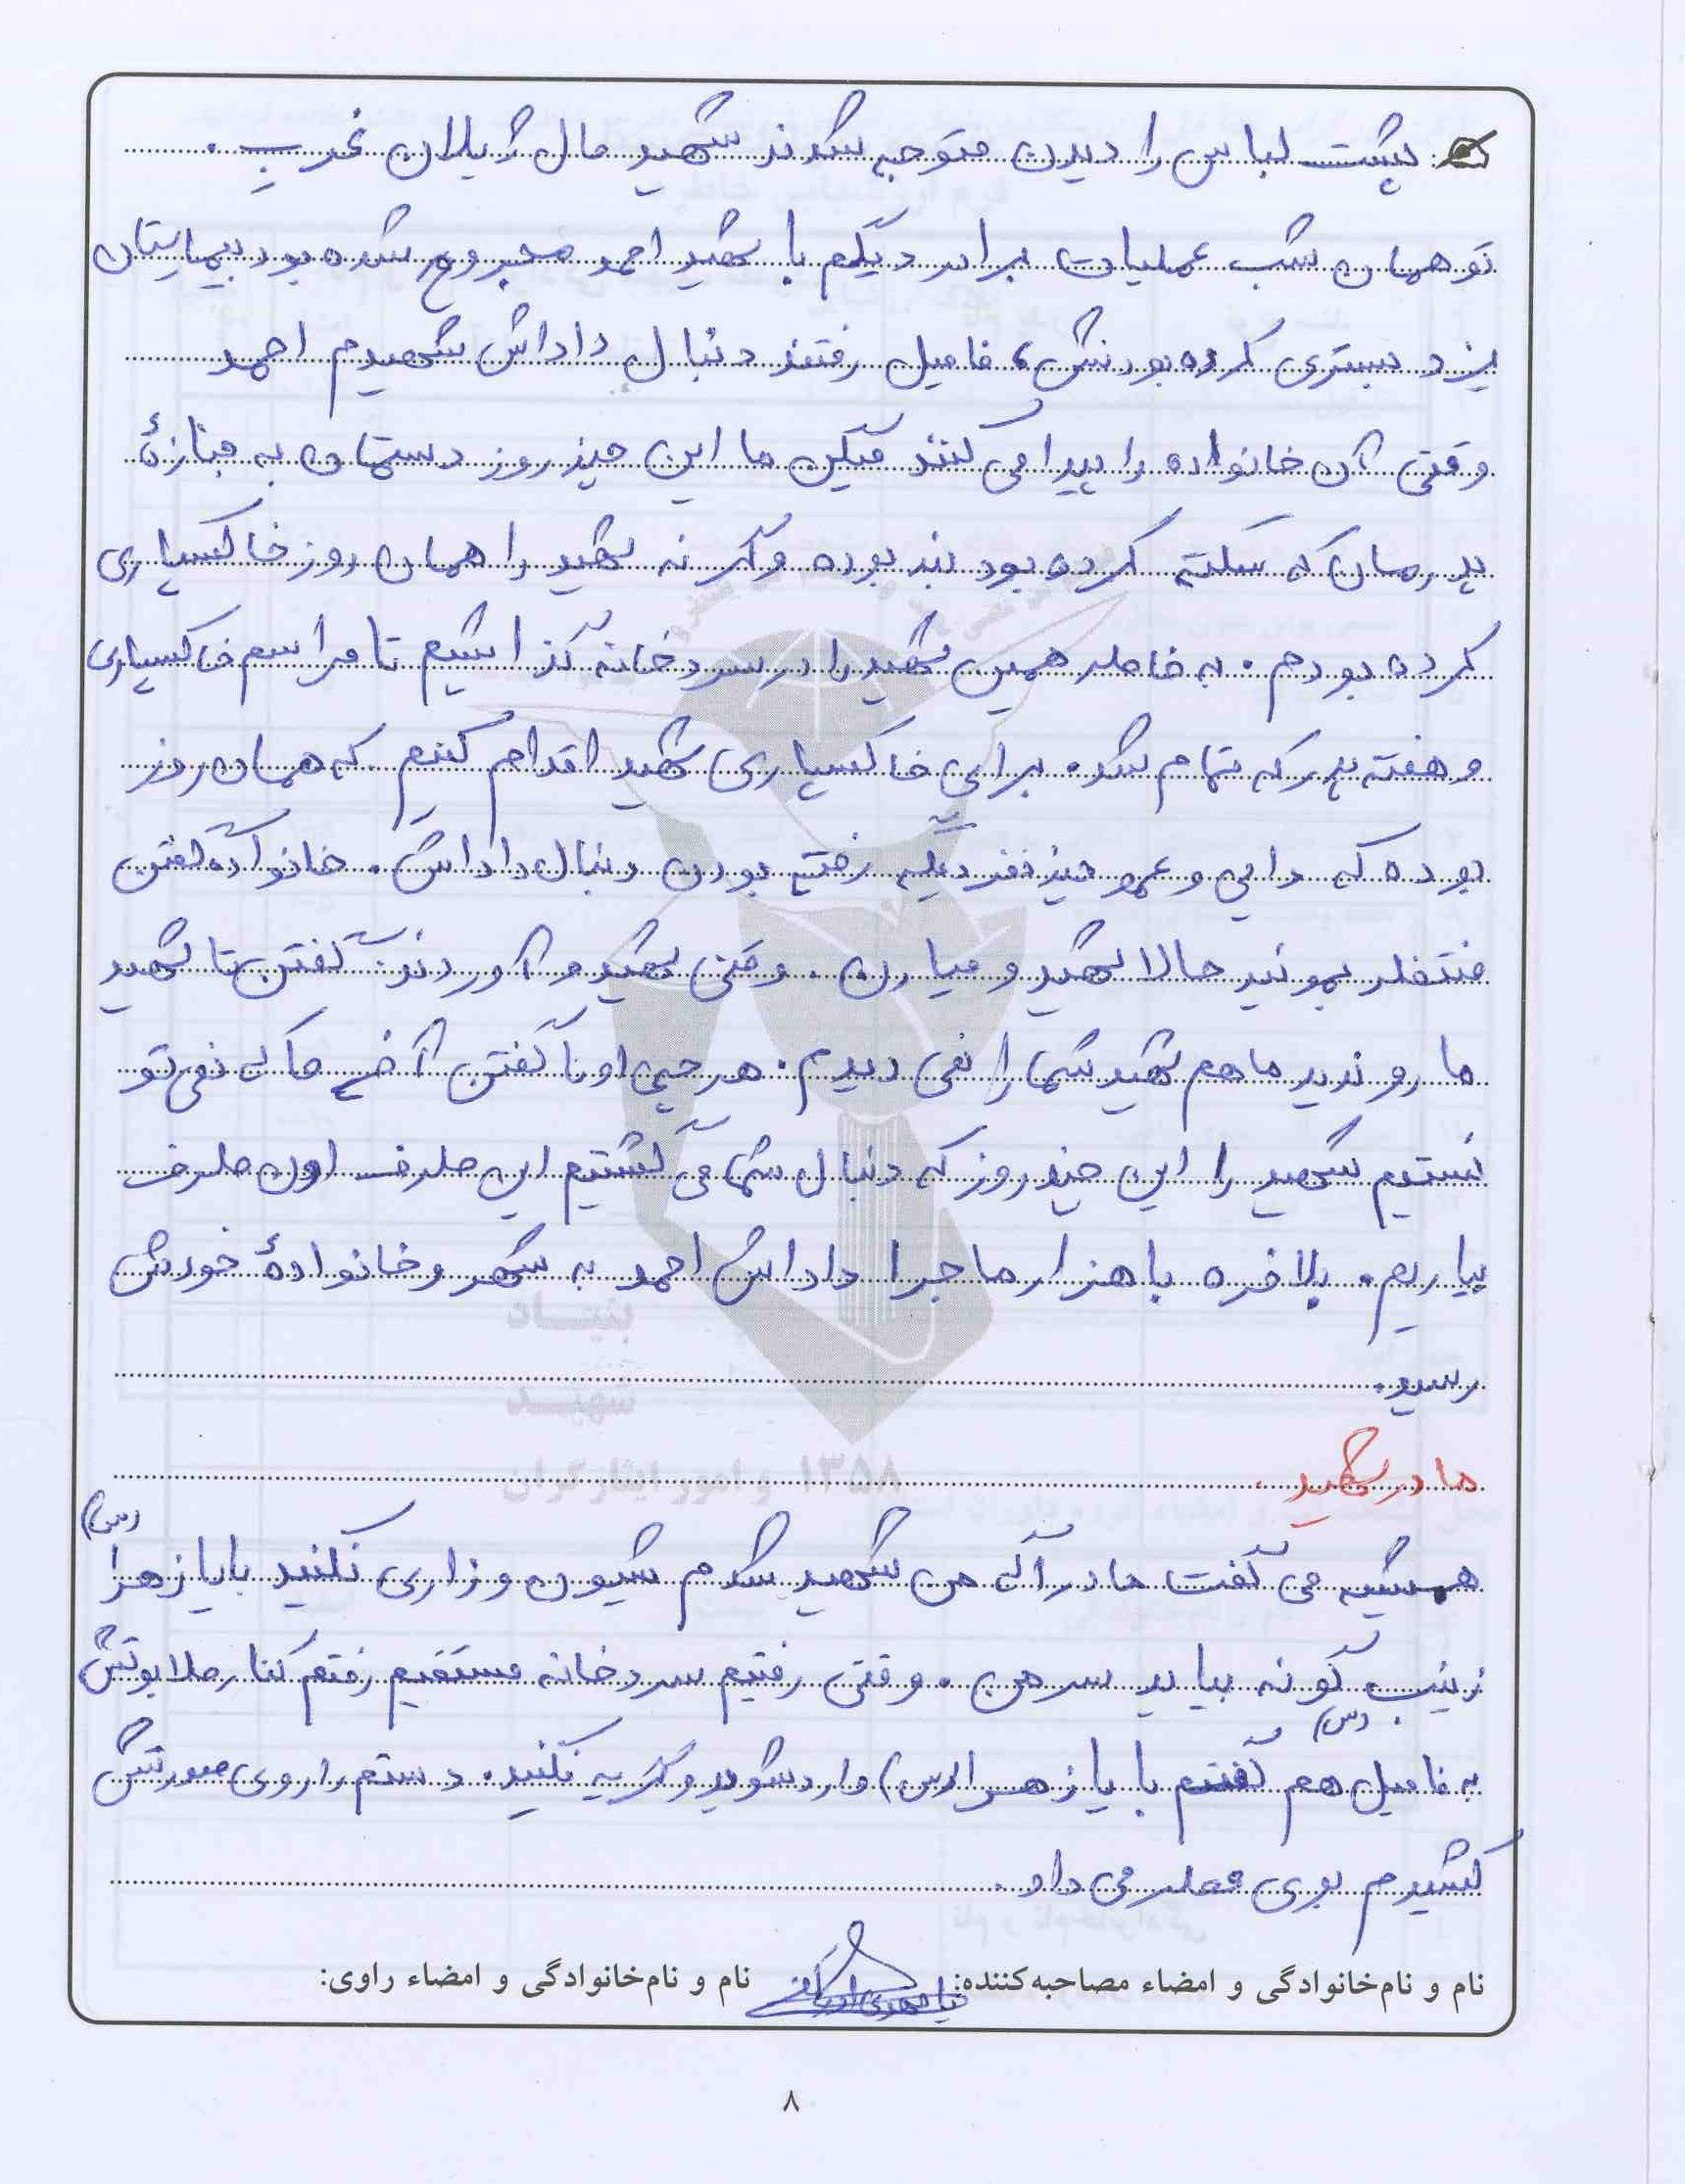 پشت لباس را دیدن متوجه شدند شهید مال گیلان غرب.
تو همان شب عملیات برادر دیگم با شهید احمد مجروح شده بود بیمارستان
یزد بستری کرده بودنش، فامیل رفتند دنبال داداش شهیدم احمد
وقتی آن خانواده را پیدا می کنند میگن ما این چند روز دستمان به جنازهٔ
پدرمان که سکته کرده بود بند بوده و اگر نه شهید را همان روز خاکسپاری
کرده بودم. به خاطر همین شهید را در سردخانه گذاشتیم تا مراسم خاکسپاری
و هفته پدر که تمام شد. برای خاکسپاری شهید اقدام کنیم که همان روز
بوده که دایی و عمو چند نفر دیگه رفته بودن دنبال داداش. خانواده گفتن
منتظر بمونید حالا شهید و میارن. وقتی شهید و آوردند گفتن تا شهید
ما رو ندید ما هم شهید شما را نمی دیدم. هر چی اونا گفتن آخه ما که نمی تو
نستیم شهید را این چند روز که دنبال شما می گشتیم این طرف اون طرف
بیاریم. بلاخره با هزار ماجرا داداش احمد به شهر و خانوادهٔ خودش
رسید.
مادر شهید
همیشه می گفت مادر اگه من شهید شدم شیون و زاری نکنید با یا زهرا (س)
زینب (س) گونه بیاید سر من. وقتی رفتیم سردخانه مستقیم رفتم کنار طابوتش
به فامیل هم گفتم با یا زهرا (س) وارد شوید و گریه نکنید. دستم را روی صورتش
کشیدم بوی عطر می داد.
نام و نام‌خانوادگی و امضاء مصاحبه‌کننده: نام و نام‌خانوادگی و امضاء راوی:
۸
بنیاد
شهید
و امور ایثارگران ۱۳۵۸